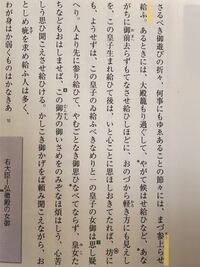 さるべき御遊びの折々、何事にもゆゑあることの節々には、まづ参上らせ
給ふ。あるときには、大殿籠もり過ぐして、やがて候はせ給ひなど、あな
がちに御前去らずもてなさせ給ひしほどに、おのづから軽き方にも見えし
を、この皇子生まれ給ひて後は、いと心ことに思ほしおきてたれば、坊に
も、ようせずは、この皇子のゐ給ふべきなめりと、一の皇子の女御は思し疑
へり。人より先に参り給ひて、やむごとなき御思ひなべてならず、皇女た
ちなどもおはしませば、この御方の御いさめをのみぞなほ煩はしう、心苦
しう思ひ聞こえさせ給ひける。かしこき御かげをば頼み聞こえながら、お
としめ疵を求め給ふ人は多く、
わが身はか弱くものはかなきあ
10
右大臣―弘徽殿の女御